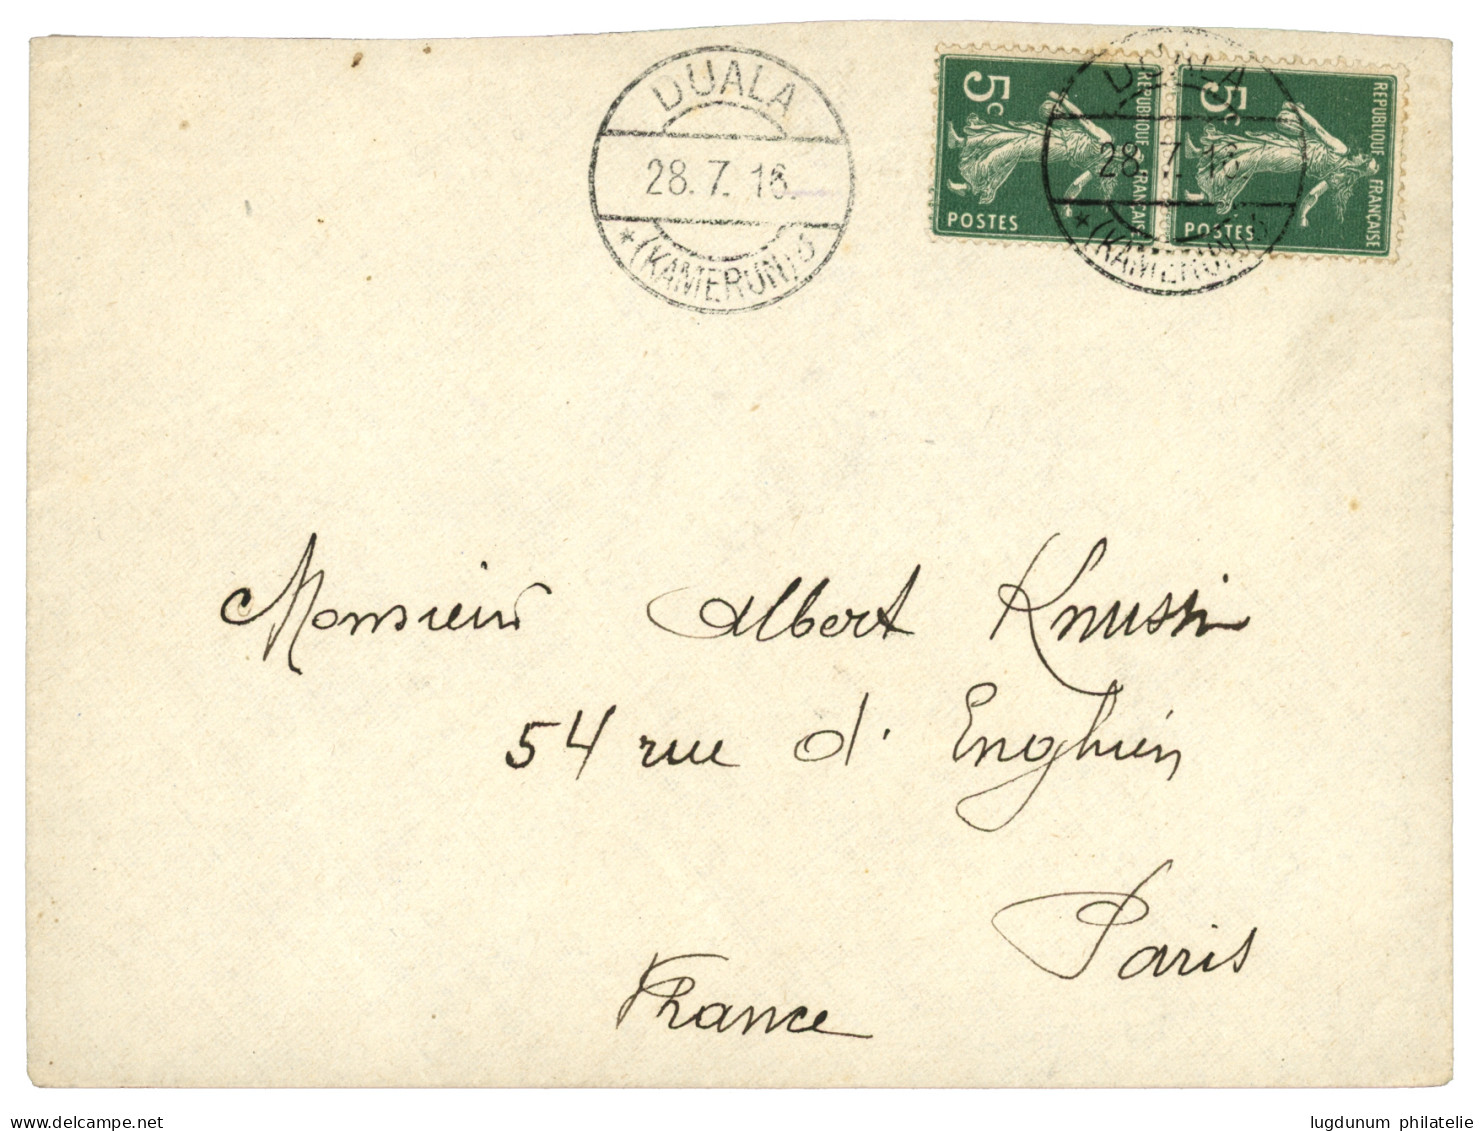 DUALA
28.7.16.
* (KAMERUN) b
5c
REPUBLIQUE FRANÇAISE
POSTES
5c
REPUBLIQUE FRANÇAISE
POSTES
DUALA
28.7.16
* (KAMERUN) b
Monsieur Albert
54 rue d'Enghien
Paris
France
delcampe.net
lugdunum philatelie